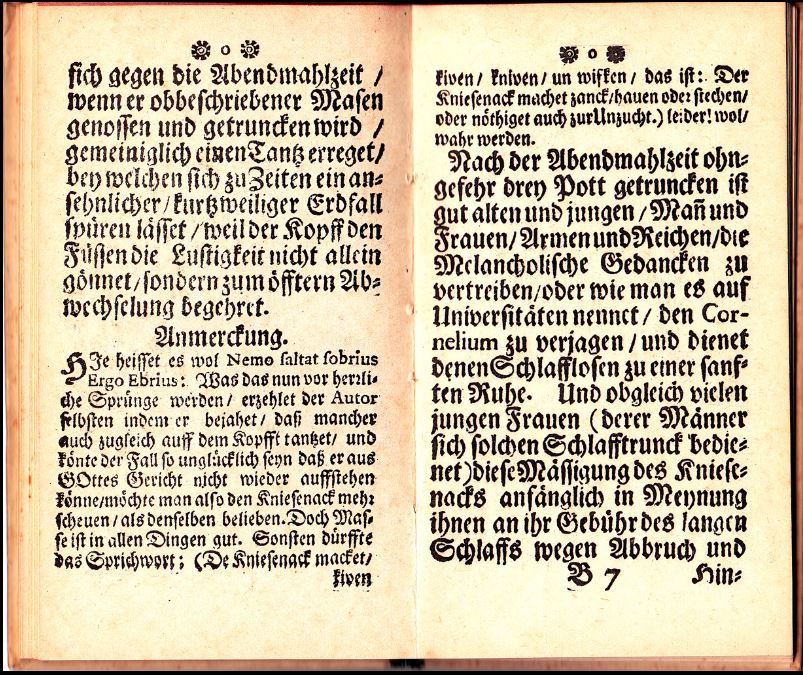 o
sich gegen die Abendmahlzeit /
wenn er obbeschriebener Masen
genossen und getruncken wird /
gemeiniglich einen Tantz erreget /
bey welchen sich zu Zeiten ein an=
sehnlicher / kurtzweiliger Erdfall
spüren lässet / weil der Kopff den
Füssen die Lustigkeit nicht allein
gönnet / sondern zum öfftern Ab=
wechselung begehret.
Anmerckung.
HJe heisset es wol Nemo saltat sobrius
Ergo Ebrius: Was das nun vor herrli=
che Sprünge werden / erzehlet der Autor
selbsten indem er bejahet / daß mancher
auch zugleich auff dem Kopfft tantzet / und
könte der Fall so unglücklich seyn daß er aus
GOttes Gericht nicht wieder auffstehen
könne / möchte man also den Kniesenack mehr
scheuen / als denselben belieben. Doch Mas=
se ist in allen Dingen gut. Sonsten dürffte
das Sprichwort: (De Kniesenack macket /
kiven
o
kiven / kniven / un wifken / das ist: Der
Kniesenack machet zanck / hauen oder stechen /
oder nöthiget auch zur Unzucht.) leider! wol /
wahr werden.
Nach der Abendmahlzeit ohn=
gefehr drey Pott getruncken ist
gut alten und jungen / Mañ und
Frauen / Armen und Reichen / die
Melancholische Gedancken zu
vertreiben / oder wie man es auf
Universitäten nennet / den Cor-
nelium zu verjagen / und dienet
denen Schlafflosen zu einer sanf=
ten Ruhe. Und obgleich vielen
jungen Frauen (derer Männer
sich solchen Schlafftrunck bedie=
net) diese Mässigung des Kniese=
nacks anfänglich in Meynung
ihnen an ihr Gebühr des langen
Schlaffs wegen Abbruch und
B 7 Hin=